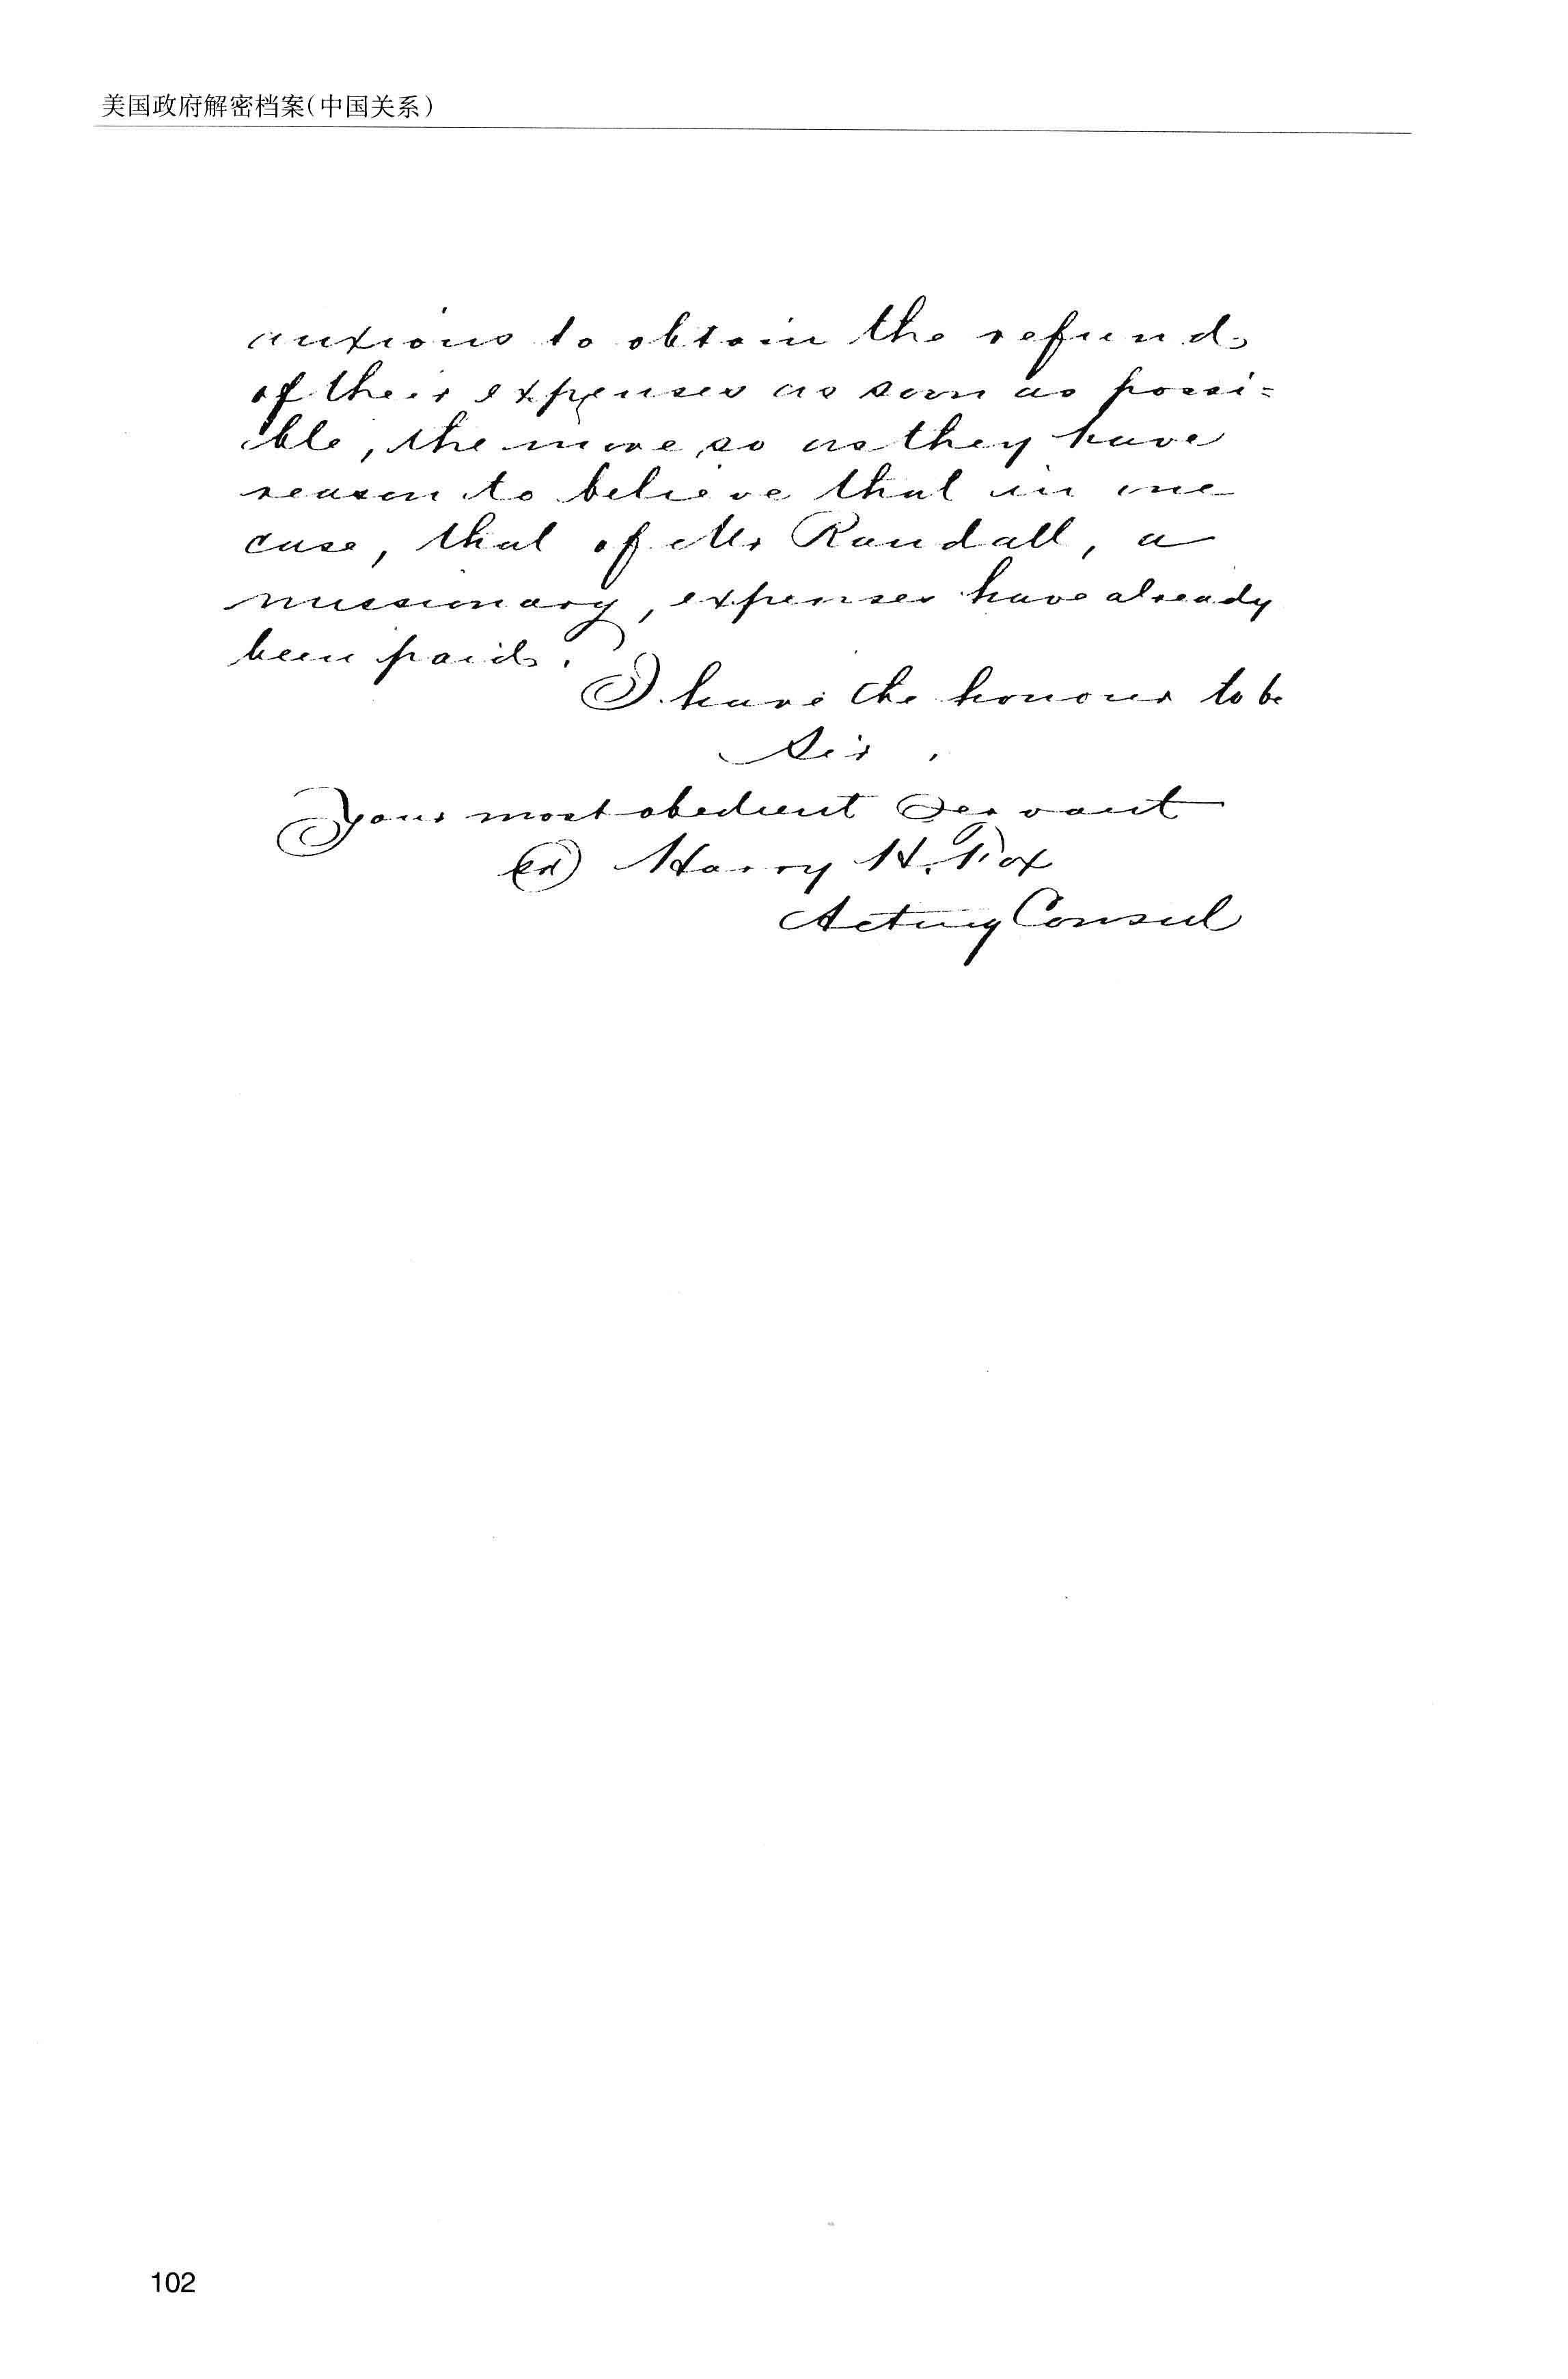 美国政府解密档案(中国关系)
anxious to obtain the refund
of their expenses as soon as possi=
ble, the more so as they have
reason to believe that in one
case, that of Mr Randall, a
missionary, expenses have already
been paid.
I have the honour to be
Sir,
Your most obedient Servant
Harry H. Fox
Acting Consul
102